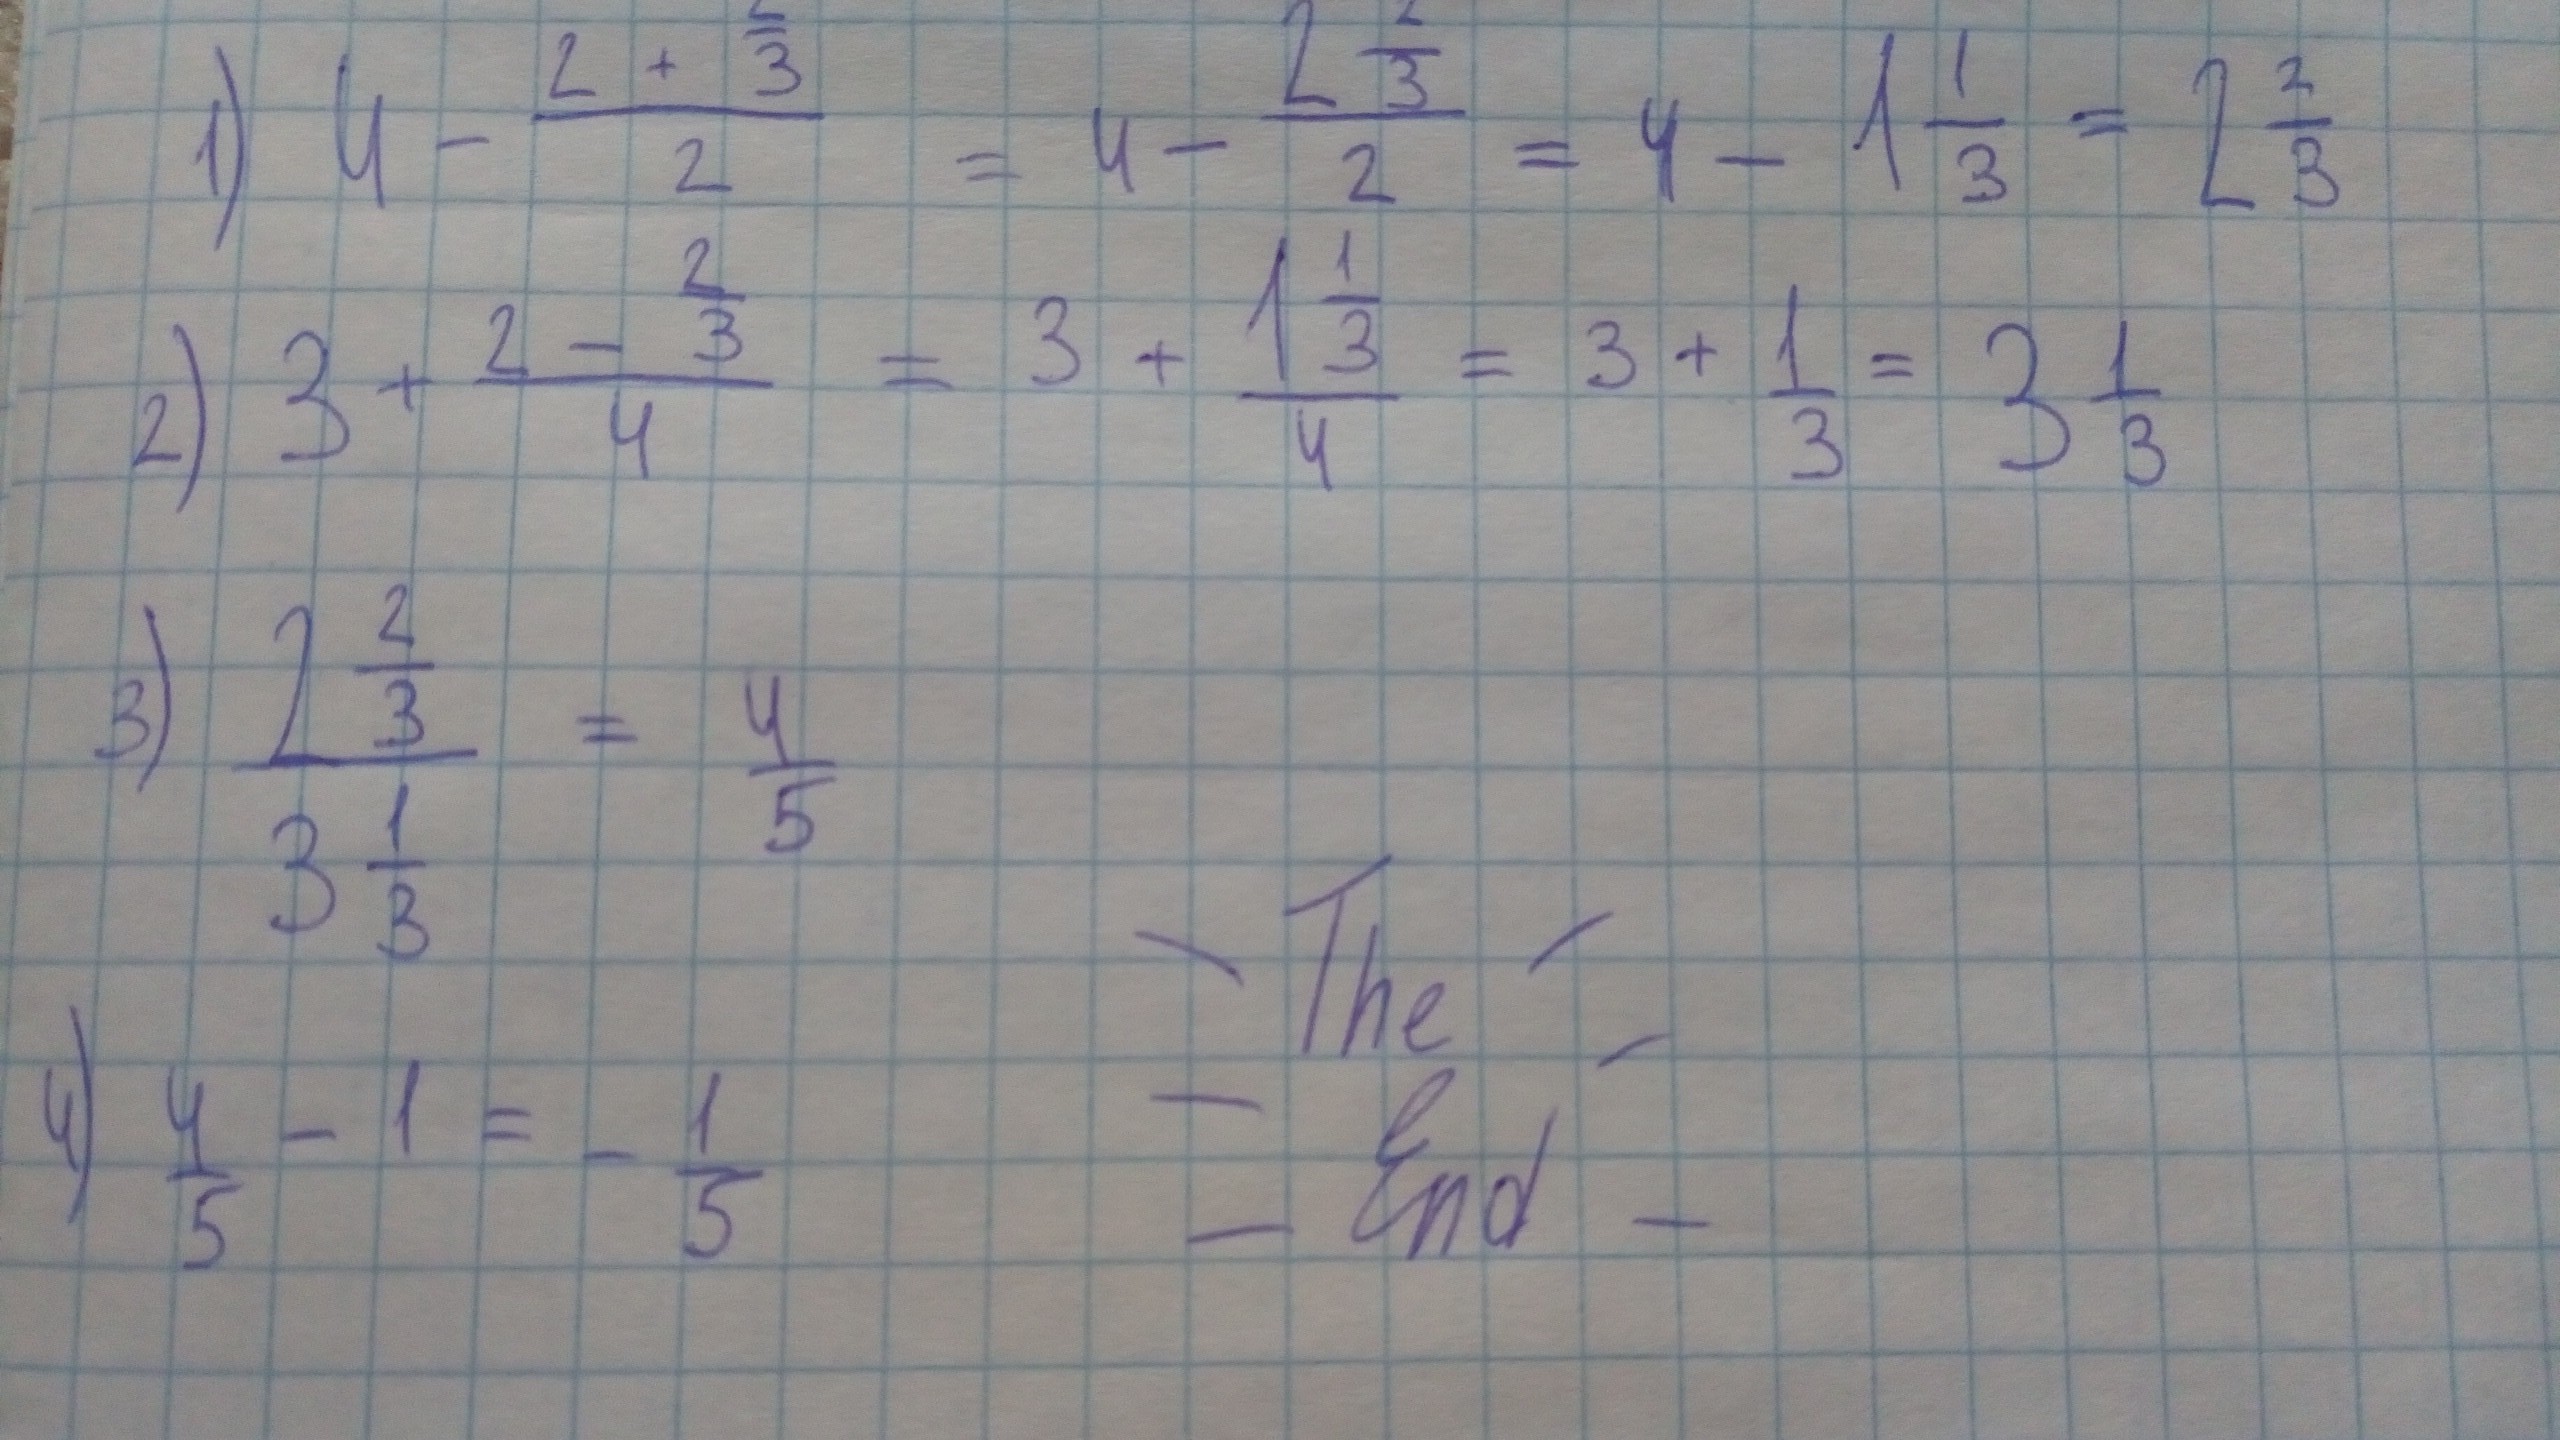 1) 4 - (2 + 2/3)/2 = 4 - (2 2/3)/2 = 4 - 1 1/3 = 2 2/3
2) 3 + (2 - 2/3)/4 = 3 + (1 1/3)/4 = 3 + 1/3 = 3 1/3
3) (2 2/3)/(3 1/3) = 4/5
4) 4/5 - 1 = - 1/5
The
End